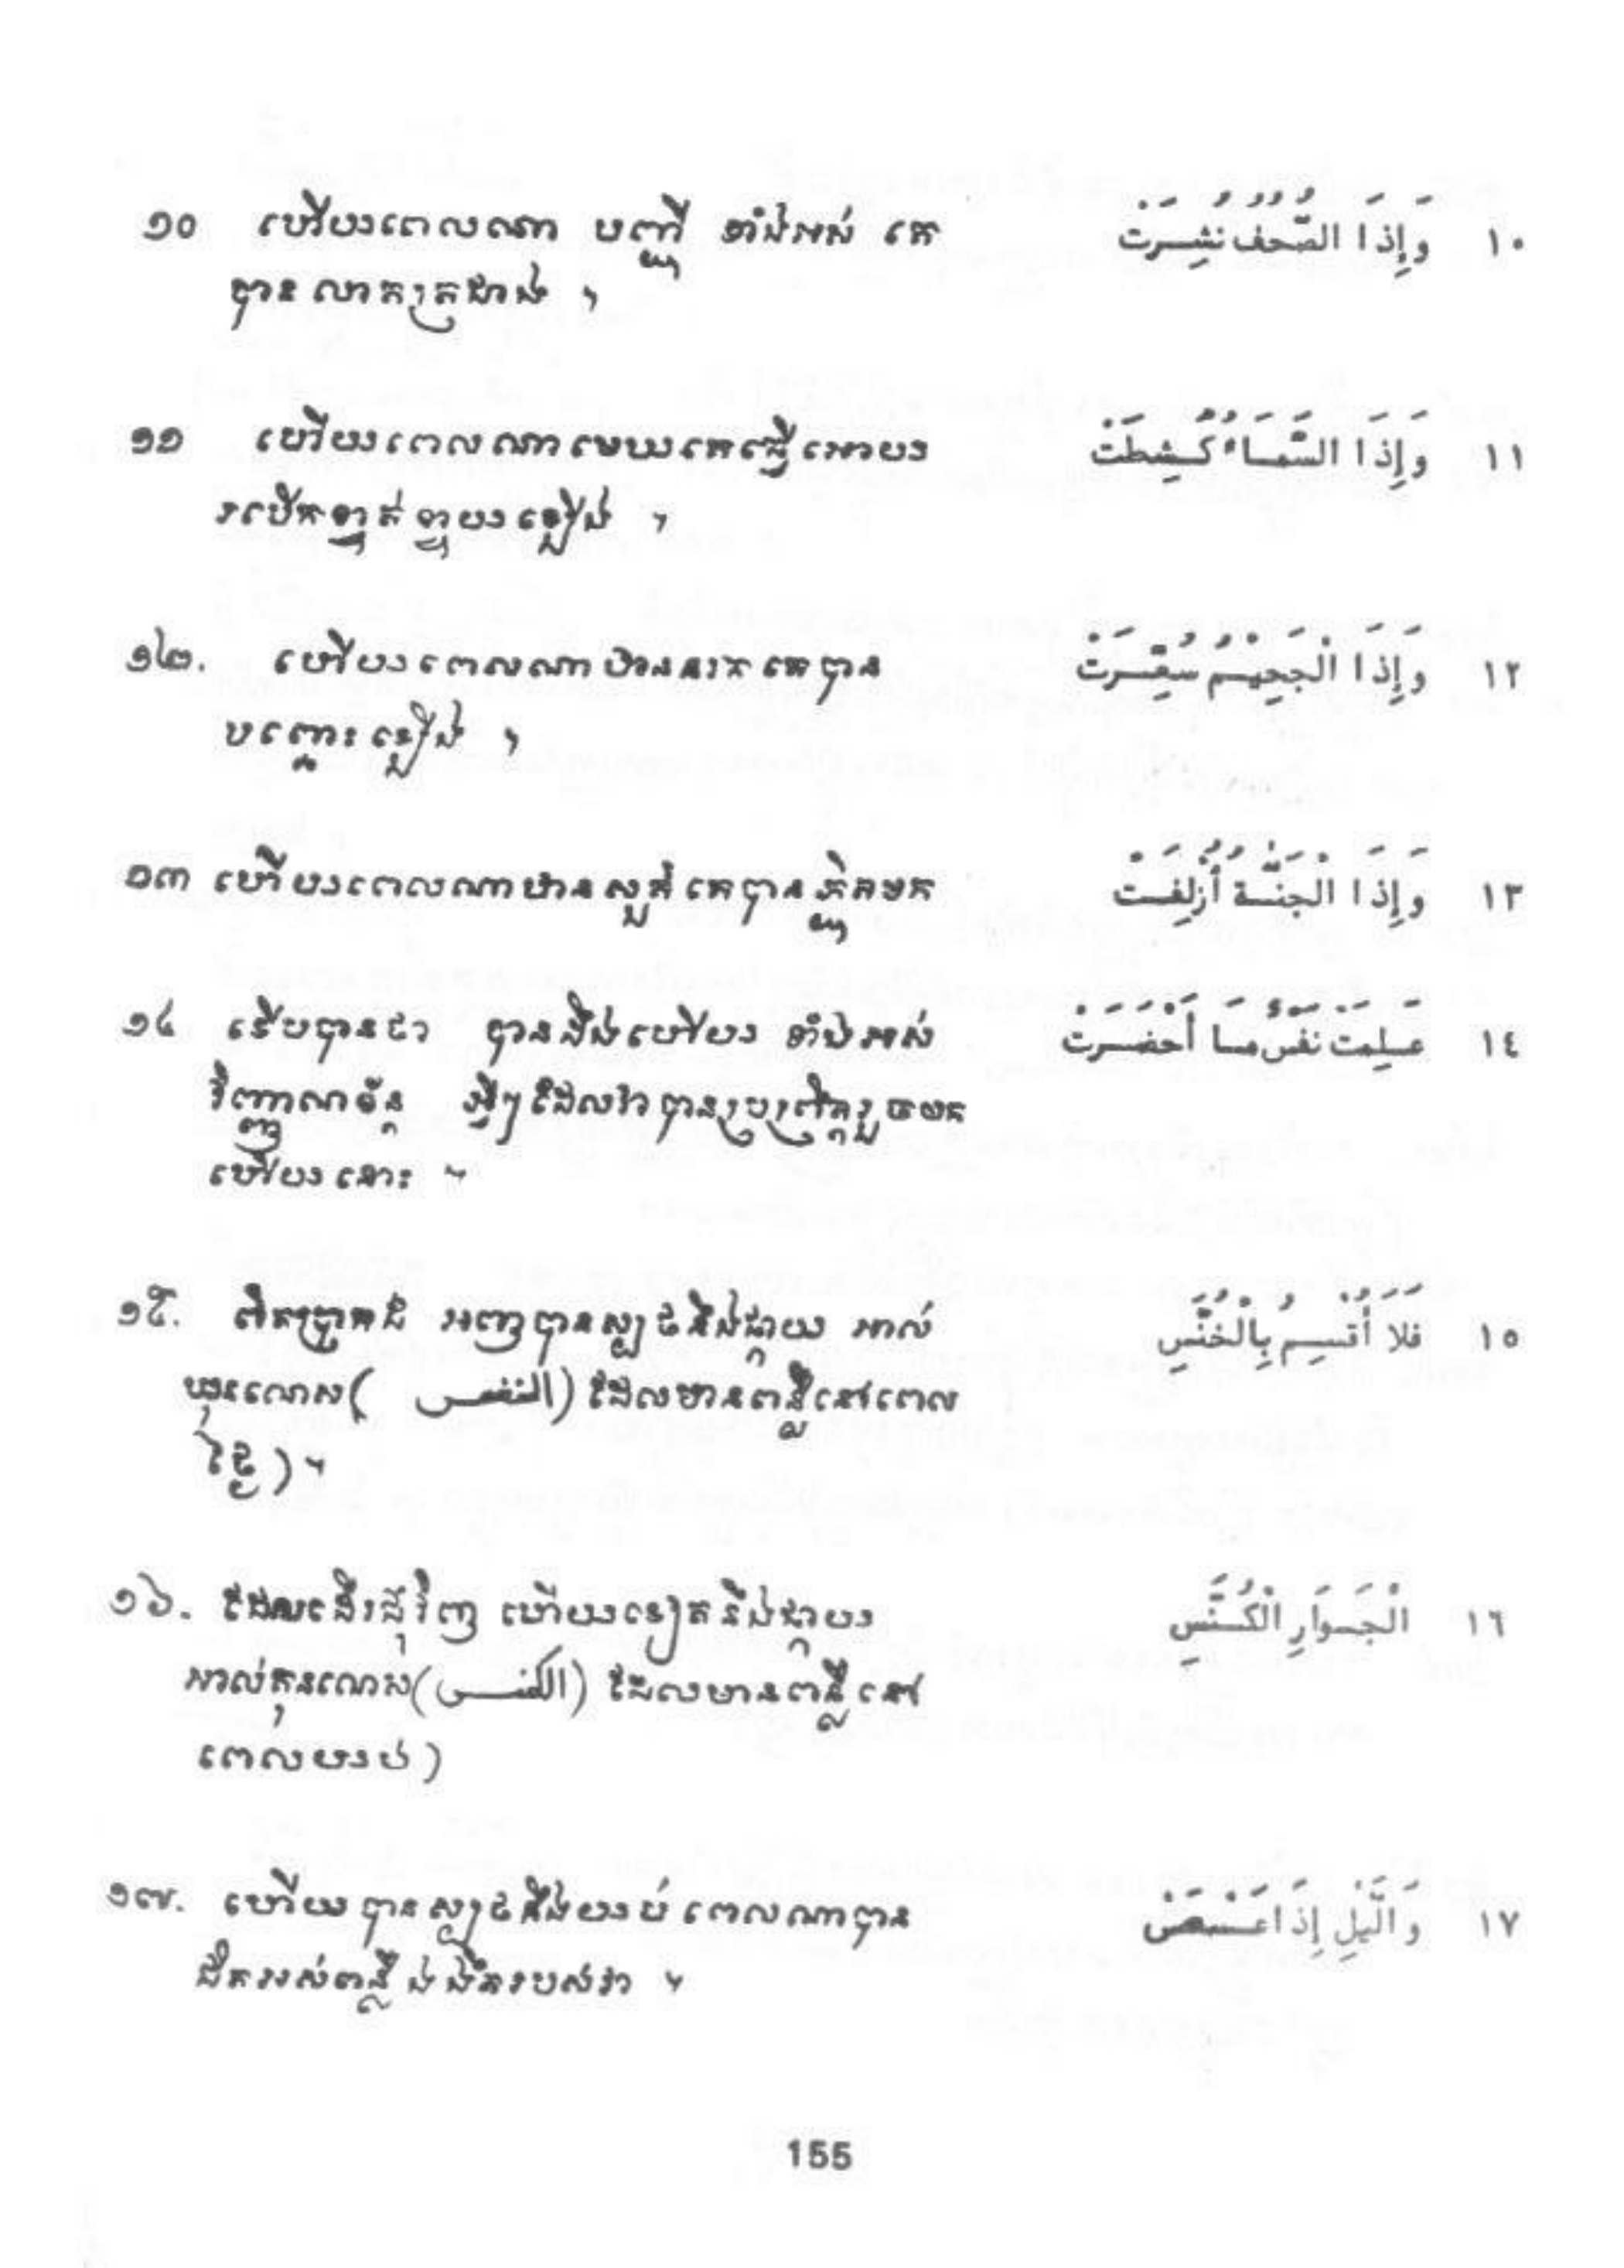 ១០ ហើយពេលណា បញ្ជី ទាំងអស់ គេ
បាន លាតត្រដាង ,
وَإِذَا الصُّحُفُ نُشِرَتْ ١٠
១១ ហើយពេលណាមេឃគេធ្វើអោយ
របើកខ្ចាត់ខ្ចាយឡើង ,
وَإِذَا السَّمَاءُ كُشِطَتْ ١١
១២. ហើយពេលណាឋាននរកគេបាន
បញ្ឆេះឡើង ,
وَإِذَا الْجَحِيمُ سُعِّرَتْ ١٢
១៣ ហើយពេលណាឋានសួគ៌គេបានភ្ជិតមក
وَإِذَا الْجَنَّةُ أُزْلِفَتْ ١٣
១៤ ទើបបានជា បានដឹងហើយ ទាំងអស់
វិញ្ញាណខ័ន្ធ អ្វីៗដែលវាបានប្រព្រឹត្តរួចមក
ហើយនោះ ។
عَلِمَتْ نَفْسٌ مَا أَحْضَرَتْ ١٤
១៥. ពិតប្រាកដ អញបានស្បថនឹងផ្កាយ អាល់
ឃុនណេស( الخنس ) ដែលមានពន្លឺនៅពេល
ថ្ងៃ) ។
فَلَا أُقْسِمُ بِالْخُنَّسِ ١٥
១៦. ដែលដើរជុំវិញ ហើយទៀតនឹងផ្កាយ
អាល់គុនណេស( الكنس ) ដែលមានពន្លឺនៅ
ពេលយប់ )
الْجَوَارِ الْكُنَّسِ ١٦
១៧. ហើយបានស្បថនឹងយប់ ពេលណាបាន
ជិតអស់ពន្លឺងងឹតរបស់វា ។
وَالَّيْلِ إِذَا عَسْعَسَ ١٧
155